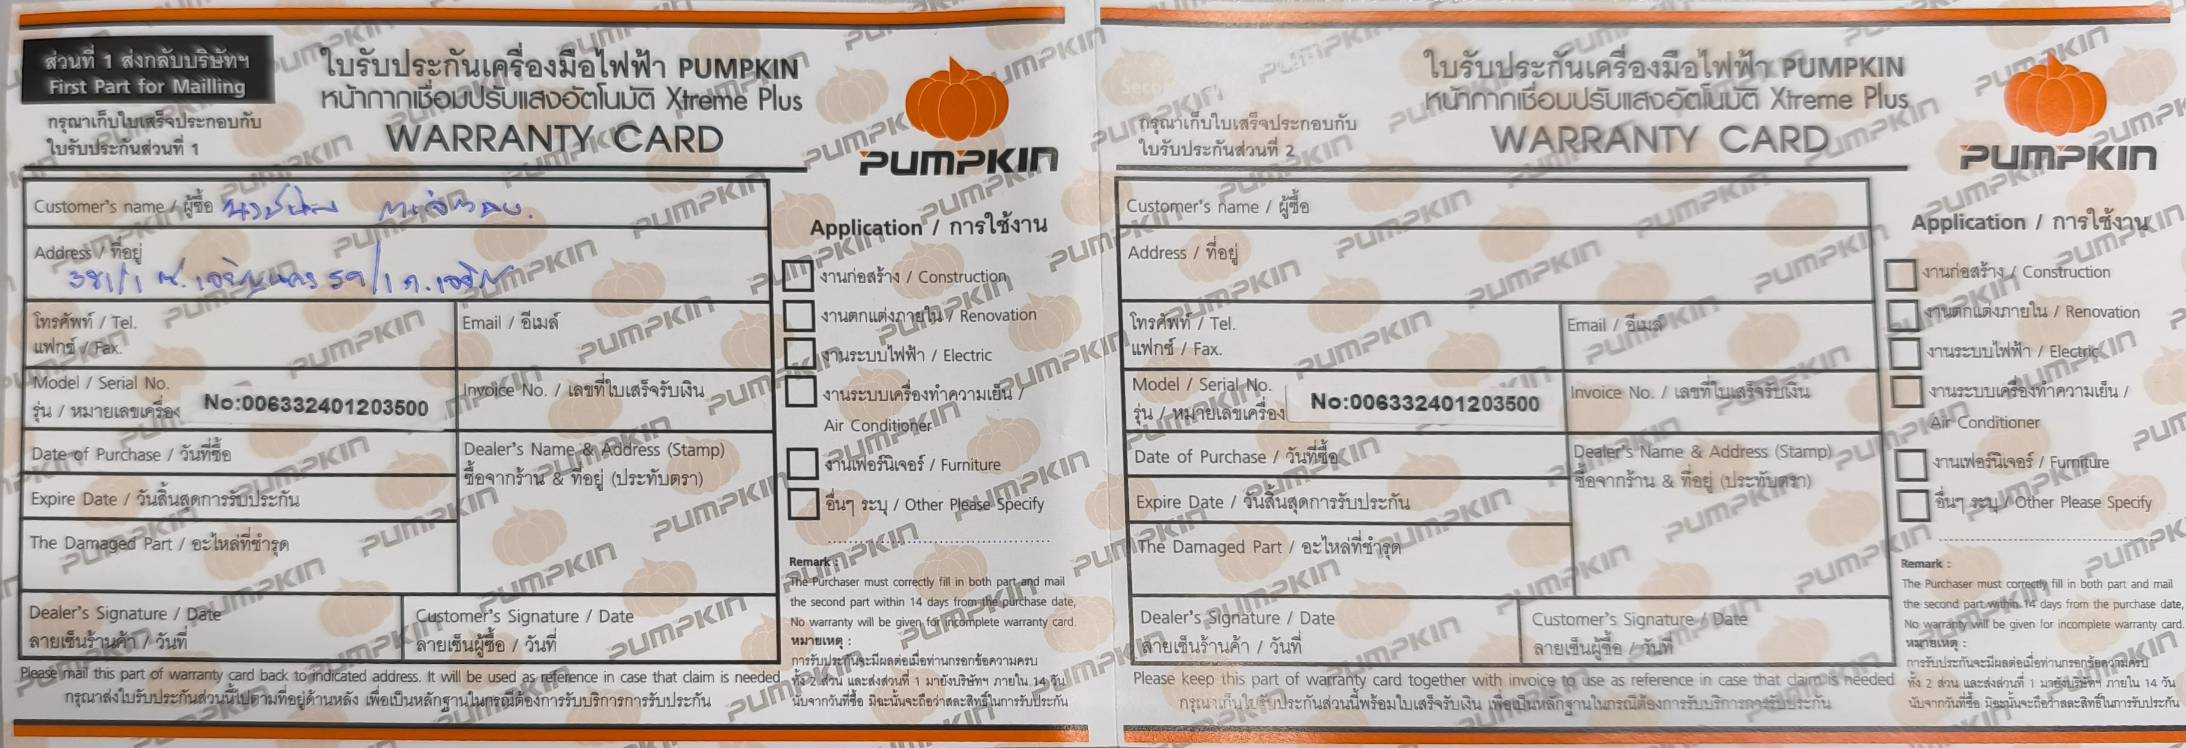 ส่วนที่ 1 ส่งกลับบริษัทฯ
First Part for Mailling
กรุณาเก็บใบเสร็จประกอบกับ
ใบรับประกันส่วนที่ 1
ใบรับประกันเครื่องมือไฟฟ้า PUMPKIN
หน้ากากเชื่อมปรับแสงอัตโนมัติ Xtreme Plus
WARRANTY CARD
PUMPKIN
Customer's name / ผู้ซื้อ
Address / ที่อยู่
381/1 ซ.เจริญนคร 59/1 ถ.เจริญ
โทรศัพท์ / Tel.
แฟกซ์ / Fax.
Email / อีเมล์
Model / Serial No.
รุ่น / หมายเลขเครื่อง No:006332401203500
Invoice No. / เลขที่ใบเสร็จรับเงิน
Date of Purchase / วันที่ซื้อ
Expire Date / วันสิ้นสุดการรับประกัน
The Damaged Part / อะไหล่ที่ชำรุด
Dealer's Name & Address (Stamp)
ซื้อจากร้าน & ที่อยู่ (ประทับตรา)
Dealer's Signature / Date
ลายเซ็นร้านค้า / วันที่
Customer's Signature / Date
ลายเซ็นผู้ซื้อ / วันที่
Application / การใช้งาน
งานก่อสร้าง / Construction
งานตกแต่งภายใน / Renovation
งานระบบไฟฟ้า / Electric
งานระบบเครื่องทำความเย็น /
Air Conditioner
งานเฟอร์นิเจอร์ / Furniture
อื่นๆ ระบุ / Other Please Specify
Remark :
The Purchaser must correctly fill in both part and mail
the second part within 14 days from the purchase date,
No warranty will be given for incomplete warranty card.
หมายเหตุ :
การรับประกันจะมีผลต่อเมื่อท่านกรอกข้อความครบ
ทั้ง 2 ส่วน และส่งส่วนที่ 1 มายังบริษัทฯ ภายใน 14 วัน
นับจากวันที่ซื้อ มิฉะนั้นจะถือว่าสละสิทธิ์ในการรับประกัน
Please mail this part of warranty card back to indicated address. It will be used as reference in case that claim is needed
กรุณาส่งใบรับประกันส่วนนี้ไปตามที่อยู่ด้านหลัง เพื่อเป็นหลักฐานในกรณีต้องการรับบริการการรับประกัน
กรุณาเก็บใบเสร็จประกอบกับ
ใบรับประกันส่วนที่ 2
ใบรับประกันเครื่องมือไฟฟ้า PUMPKIN
หน้ากากเชื่อมปรับแสงอัตโนมัติ Xtreme Plus
WARRANTY CARD
PUMPKIN
Customer's name / ผู้ซื้อ
Address / ที่อยู่
โทรศัพท์ / Tel.
แฟกซ์ / Fax.
Email / อีเมล์
Model / Serial No.
รุ่น / หมายเลขเครื่อง No:006332401203500
Invoice No. / เลขที่ใบเสร็จรับเงิน
Date of Purchase / วันที่ซื้อ
Expire Date / วันสิ้นสุดการรับประกัน
The Damaged Part / อะไหล่ที่ชำรุด
Dealer's Name & Address (Stamp)
ซื้อจากร้าน & ที่อยู่ (ประทับตรา)
Dealer's Signature / Date
ลายเซ็นร้านค้า / วันที่
Customer's Signature / Date
ลายเซ็นผู้ซื้อ / วันที่
Application / การใช้งาน
งานก่อสร้าง / Construction
งานตกแต่งภายใน / Renovation
งานระบบไฟฟ้า / Electric
งานระบบเครื่องทำความเย็น /
Air Conditioner
งานเฟอร์นิเจอร์ / Furniture
อื่นๆ ระบุ / Other Please Specify
Remark :
The Purchaser must correctly fill in both part and mail
the second part within 14 days from the purchase date,
No warranty will be given for incomplete warranty card.
หมายเหตุ :
การรับประกันจะมีผลต่อเมื่อท่านกรอกข้อความครบ
ทั้ง 2 ส่วน และส่งส่วนที่ 1 มายังบริษัทฯ ภายใน 14 วัน
นับจากวันที่ซื้อ มิฉะนั้นจะถือว่าสละสิทธิ์ในการรับประกัน
Please keep this part of warranty card together with invoice to use as reference in case that claim is needed
กรุณาเก็บใบรับประกันส่วนนี้พร้อมใบเสร็จรับเงิน เพื่อเป็นหลักฐานในกรณีต้องการรับบริการการรับประกัน